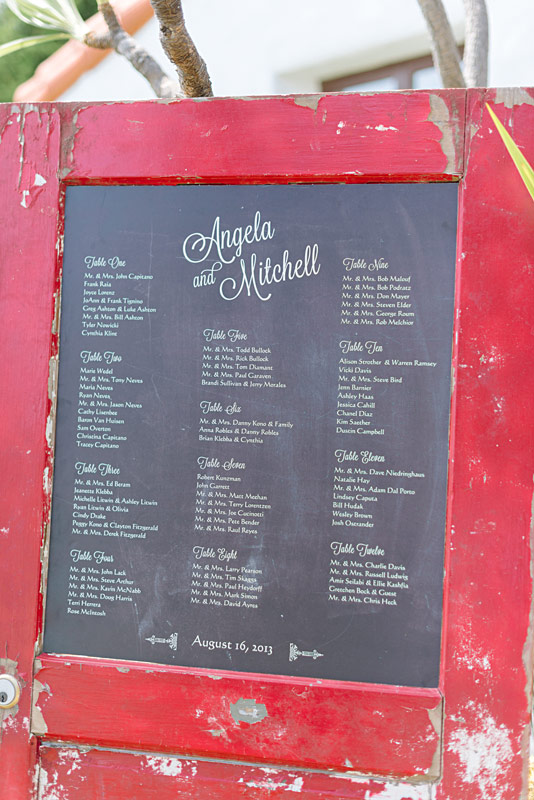 Angela
and Mitchell
Table One
Mr. & Mrs. John Capitano
Frank Raia
Joyce Lorenz
JoAnn & Frank Tignino
Greg Ashton & Luke Ashton
Mr. & Mrs. Bill Ashton
Tyler Nowicki
Cynthia Klint
Table Two
Marie Wedel
Mr. & Mrs. Tony Neves
Maria Neves
Ryan Neves
Mr. & Mrs. Jason Neves
Cathy Lisenbee
Baron Van Huisen
Sam Overton
Christina Capitano
Tracey Capitano
Table Three
Mr. & Mrs. Ed Beram
Jeanette Klebba
Michelle Litwin & Ashley Litwin
Ryan Litwin & Olivia
Cindy Drake
Peggy Kono & Clayton Fitzgerald
Mr. & Mrs. Derek Fitzgerald
Table Four
Mr. & Mrs. John Lack
Mr. & Mrs. Steve Arthur
Mr. & Mrs. Kevin McNabb
Mr. & Mrs. Doug Harris
Terri Herrera
Rose McIntosh
Table Five
Mr. & Mrs. Todd Bullock
Mr. & Mrs. Rick Bullock
Mr. & Mrs. Tom Diamant
Mr. & Mrs. Paul Garaven
Brandi Sullivan & Jerry Morales
Table Six
Mr. & Mrs. Danny Kono & Family
Anna Robles & Danny Robles
Brian Klebba & Cynthia
Table Seven
Robert Kunzman
John Garrett
Mr. & Mrs. Matt Meehan
Mr. & Mrs. Terry Lorentzen
Mr. & Mrs. Joe Cucinotti
Mr. & Mrs. Pete Bender
Mr. & Mrs. Raul Reyes
Table Eight
Mr. & Mrs. Larry Pearson
Mr. & Mrs. Tim Skaggs
Mr. & Mrs. Paul Heydorff
Mr. & Mrs. Mark Simon
Mr. & Mrs. David Ayres
Table Nine
Mr. & Mrs. Bob Malouf
Mr. & Mrs. Bob Podratz
Mr. & Mrs. Don Mayer
Mr. & Mrs. Steven Elder
Mr. & Mrs. George Room
Mr. & Mrs. Rob Melchior
Table Ten
Alison Strother & Warren Ramsey
Vicki Davis
Mr. & Mrs. Steve Bird
Jenn Barnier
Ashley Haas
Jessica Cahill
Chanel Diaz
Kim Saether
Dustin Campbell
Table Eleven
Mr. & Mrs. Dave Niedringhaus
Natalie Hay
Mr. & Mrs. Adam Dal Porto
Lindsey Caputa
Bill Hudak
Wesley Brown
Josh Ostrander
Table Twelve
Mr. & Mrs. Charlie Davis
Mr. & Mrs. Russell Ludwig
Amir Seilabi & Ellie Kashfia
Gretchen Bock & Guest
Mr. & Mrs. Chris Heck
August 16, 2013